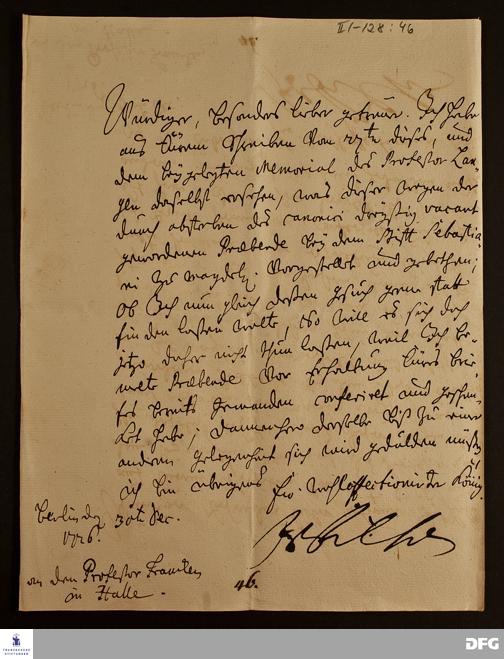 III-128:46
Würdiger, besonders lieber getreuer. Ich habe
aus Eurem Schreiben vom 27ten dieses, und
dem beygelegten Memorial des Professor Lan-
gen daselbst ersehen, was dieser wegen der
durch absterben des canonici vacant
gewordenen Præbende bey dem Stifft Sebastia-
ni zu Magdeb. vorgestellet und gebethen;
Ob Ich nun gleich dessen gesuch gerne statt
finden lassen wolte, So will es sich doch
jetzo daher nicht thun lassen, weil Ich be-
melte Præbende vor Erhaltung Eures Brie-
fes bereits jemanden conferiret und geschen-
ket habe; dannenhero derselbe biß zu einer
andern gelegenheit sich wird gedulden müßen
ich bin übrigens Ew. wohlaffectionirter König
Berlin den 30ten Dec.
1726.
FrWilhelm
an den Professor Francken
in Halle.
46.
FRANCKESCHE STIFTUNGEN
DFG